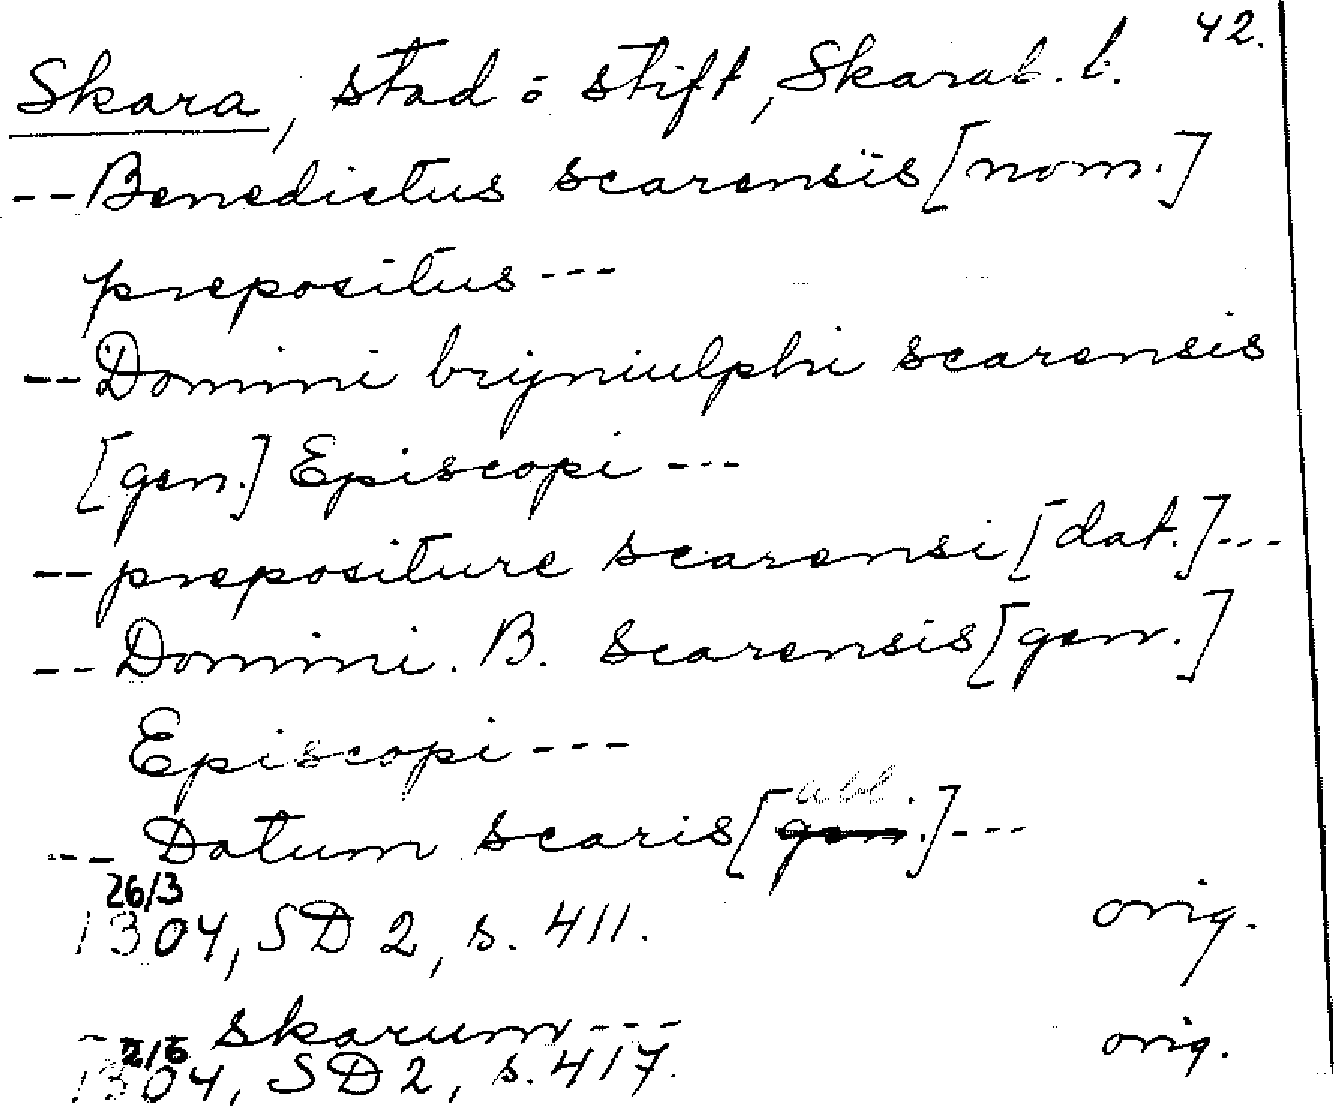 42.
Skara, stad o stift, Skarab. l.
-- Benedictus scarensis [nom.]
prepositus ---
-- Domini brijniulphi scarensis
[gen.] Episcopi ---
-- prepositure scarensi [dat.] ---
-- Domini. B. scarensis [gen.]
Episcopi ---
--- Datum scaris [gen. abl.] ---
26/3
1304, SD 2, s. 411. orig.
--- skarum --- orig.
1304, SD 2, s. 417.